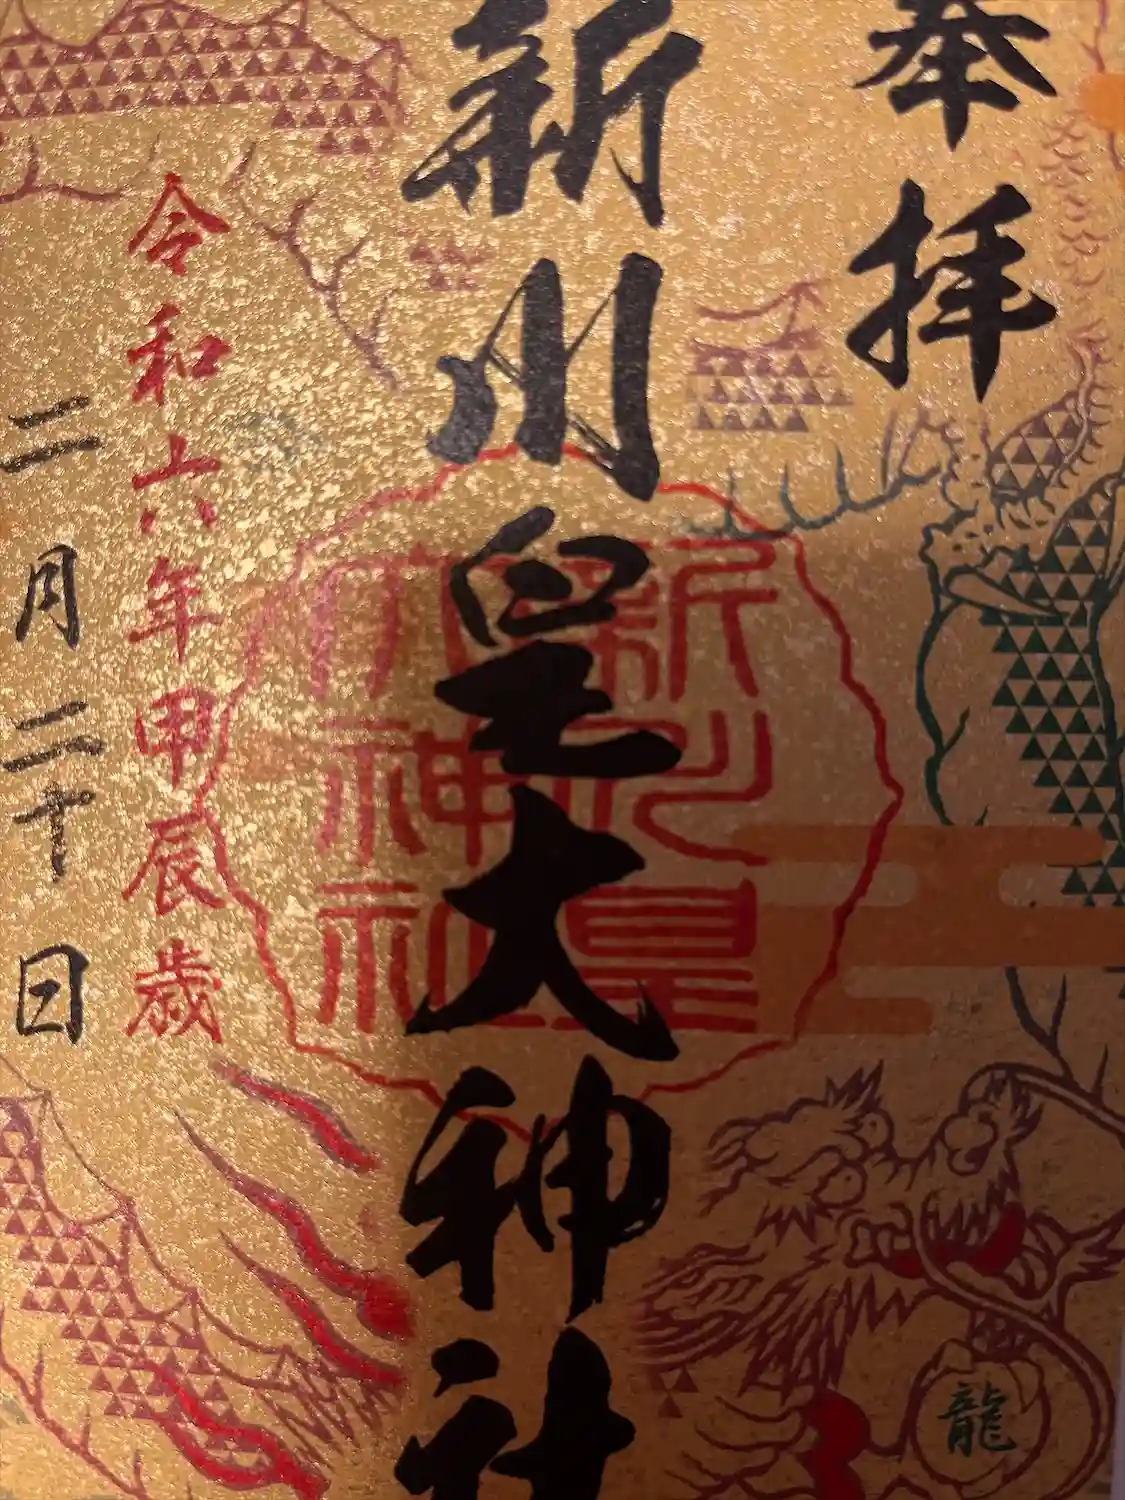 奉拝
新川皇大神社
新川皇大神社
令和六年甲辰歳
二月二十日
龍